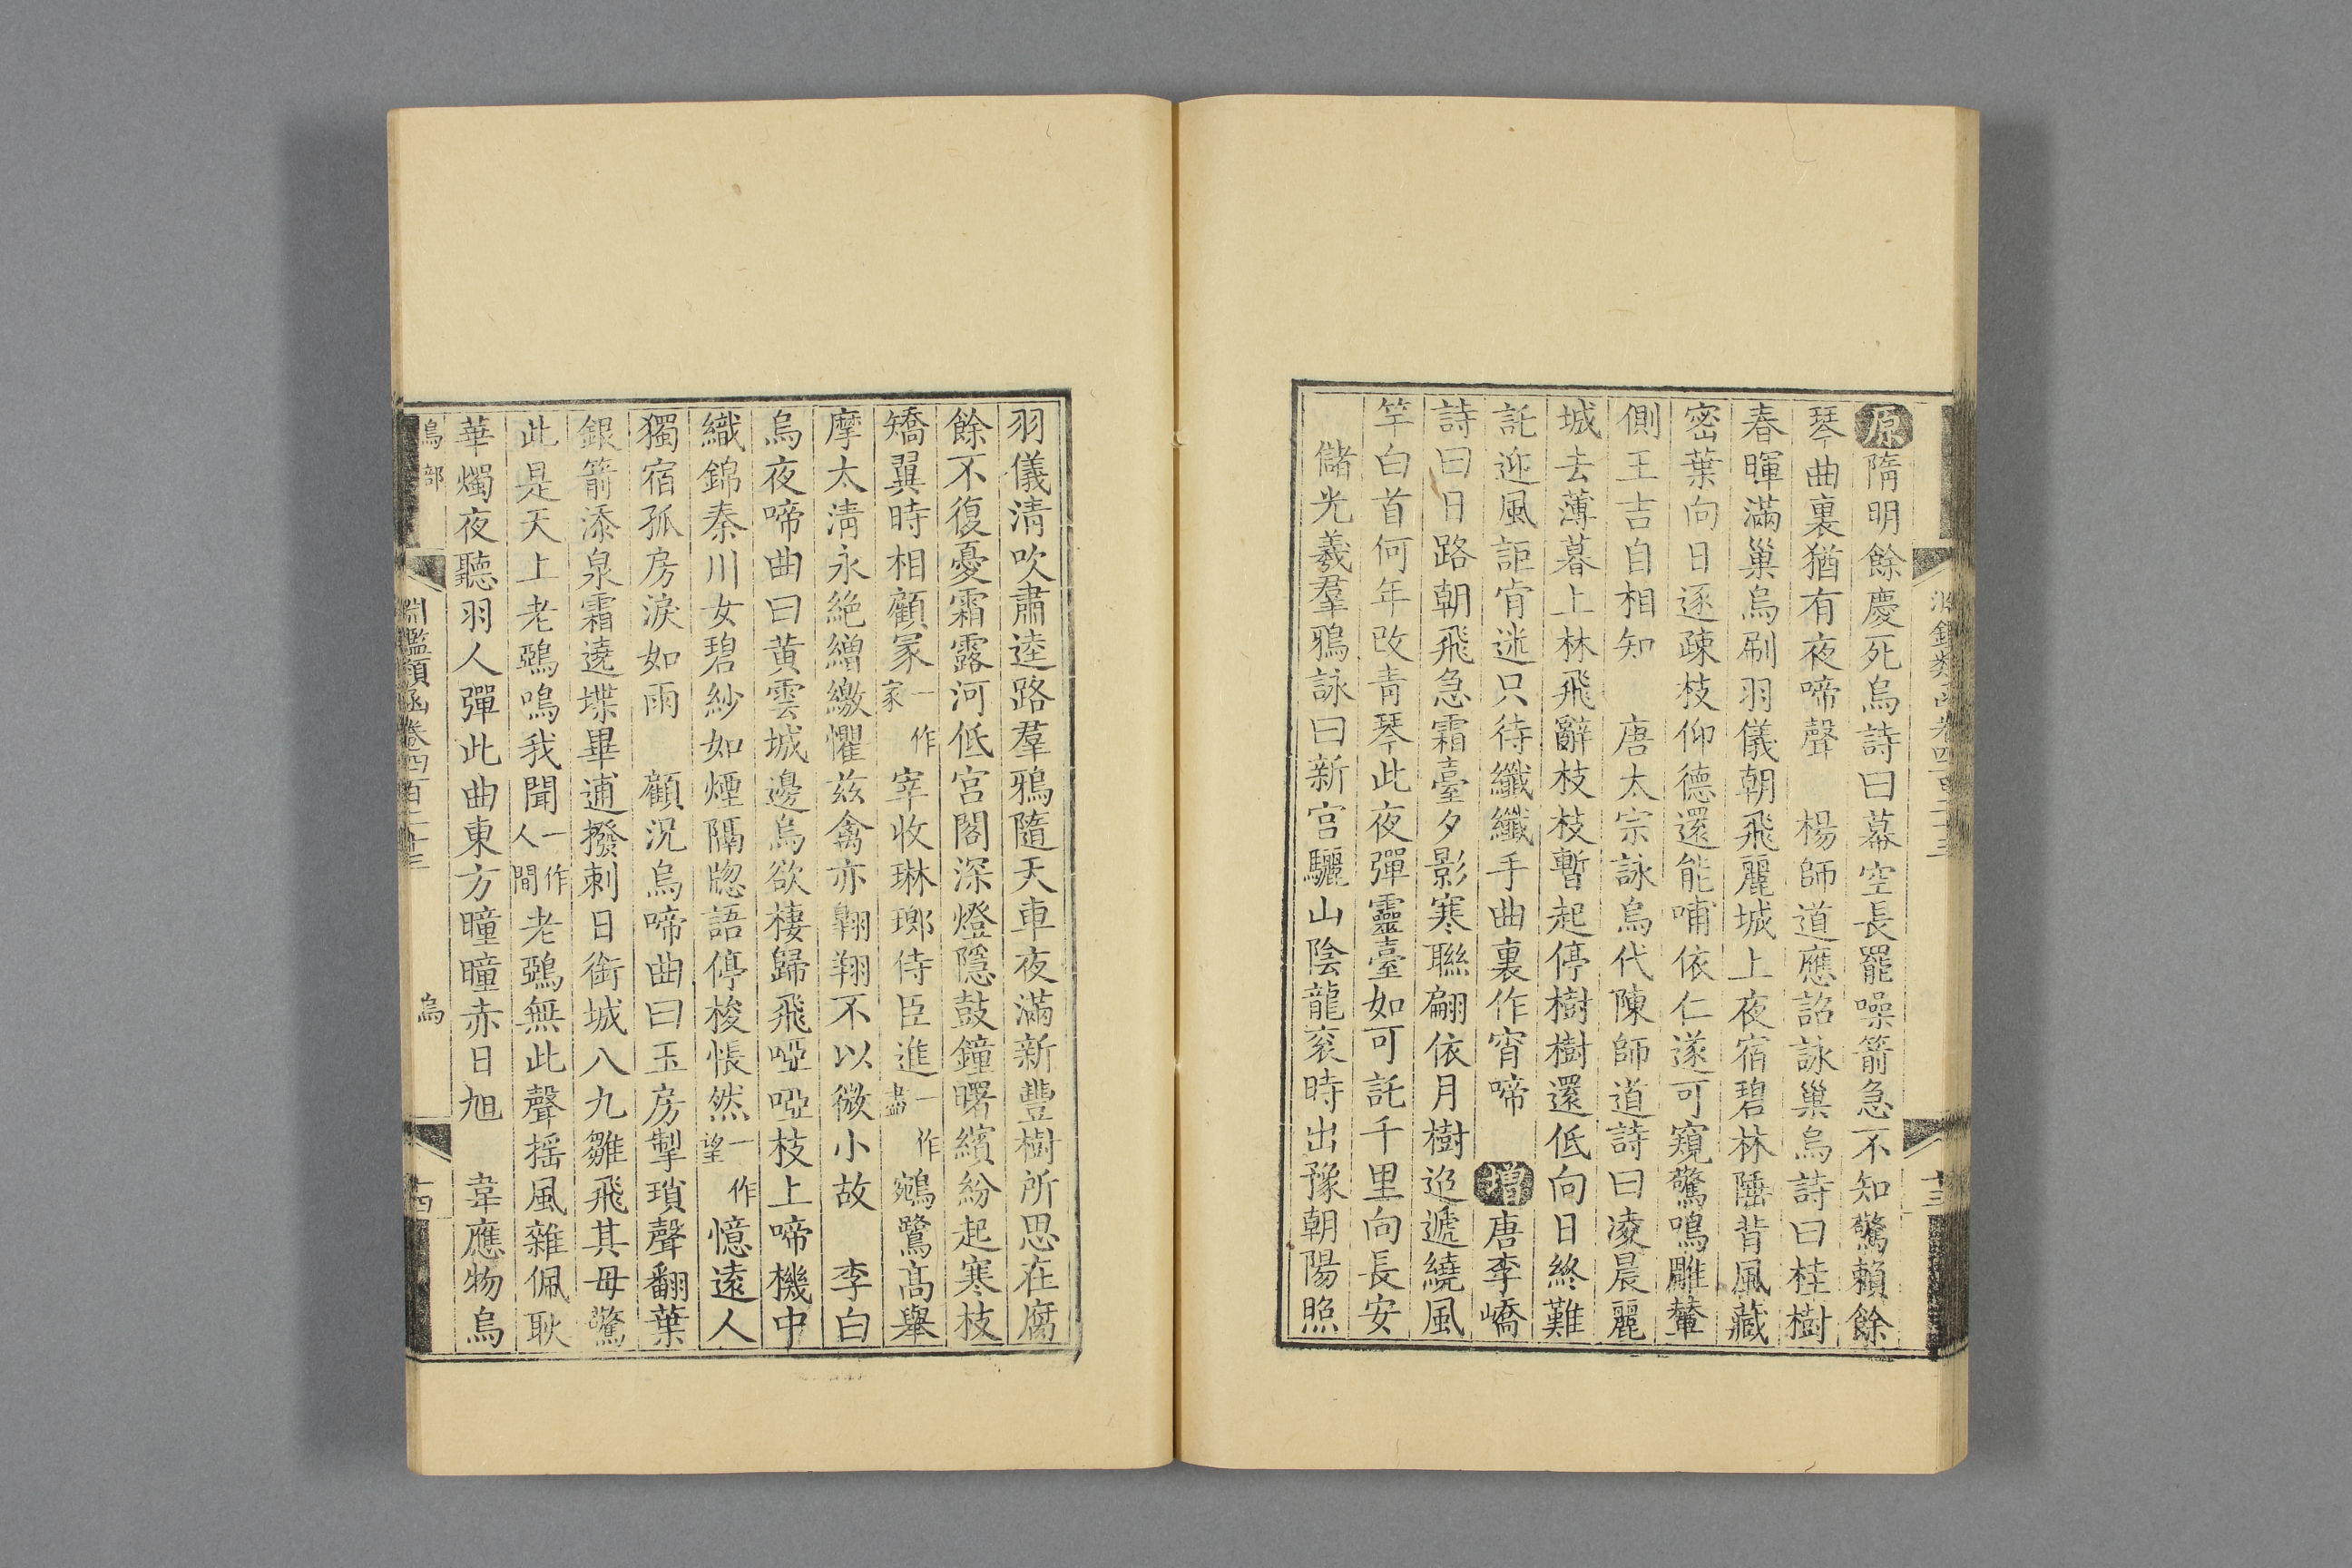 原隋明餘慶死烏詩曰幕空長罷噪箭急不知驚賴餘
琴曲裏猶有夜啼聲 楊師道應詔詠巢烏詩曰桂樹
春暉滿巢烏刷羽儀朝飛麗城上夜宿碧林陲背風藏
密葉向日逐疎枝仰德還能哺依仁遂可窺驚鳴雕輦
側王吉自相知 唐太宗詠烏代陳師道詩曰凌晨麗
城去薄暮上林飛辭枝枝暫起停樹樹還低向日終難
託迎風詎肯迷只待纖纖手曲裏作宵啼 增唐李嶠
詩曰日路朝飛急霜臺夕影寒聯翩依月樹迢遞繞風
竿白首何年改青琴此夜彈靈臺如可託千里向長安
儲光羲羣鴉詠曰新宫驪山陰龍衮時出豫朝陽照
羽儀清吹肅逵路羣鴉隨天車夜滿新豐樹所思在腐
餘不復憂霜露河低宫閣深燈隱鼓鐘曙繽紛起寒枝
矯翼時相顧冢一作家宰收琳瑯侍臣進一作盡鵷鷺高舉
摩太清永絶繒繳懼兹禽亦翱翔不以微小故 李白
烏夜啼曲曰黄雲城邊烏欲棲歸飛啞啞枝上啼機中
織錦秦川女碧紗如煙隔牕語停梭悵然一作望憶遠人
獨宿孤房淚如雨 顧況烏啼曲曰玉房掣瑣聲翻葉
銀箭添泉霜遶堞畢逋撥剌日銜城八九雛飛其母驚
此是天上老鵶鳴我聞一作人間老鵶無此聲摇風雜佩耿
華燭夜聽羽人彈此曲東方曈曈赤日旭 韋應物烏
鳥部 淵鑑類函卷四百二十三 烏 十四